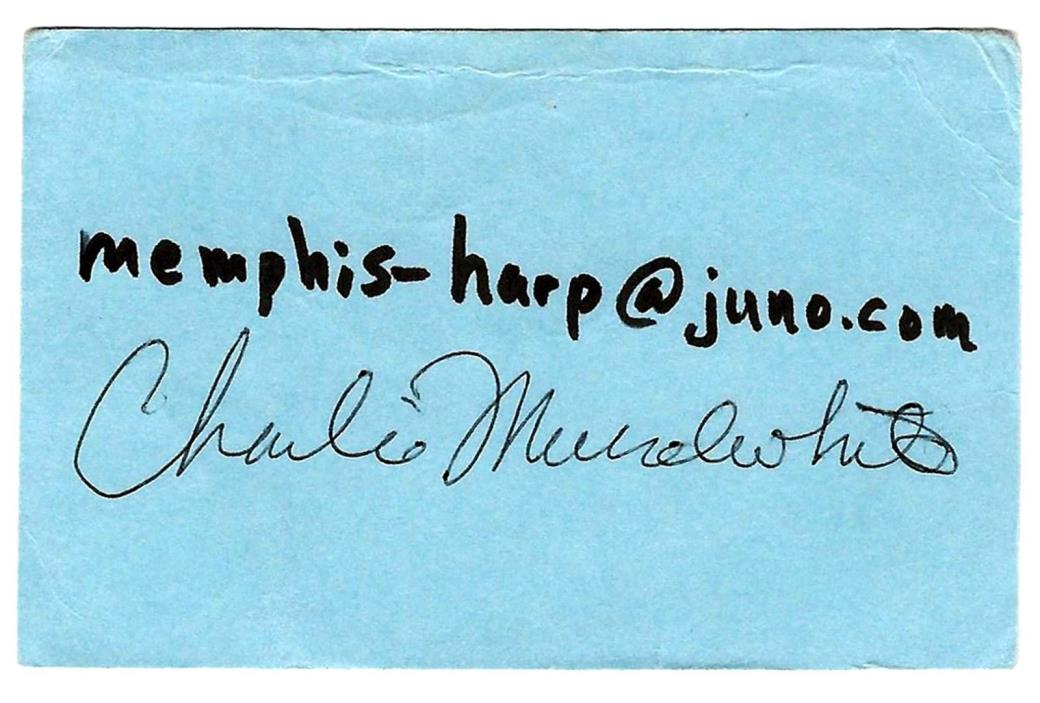 memphis-harp@juno.com
Charlie Musselwhite